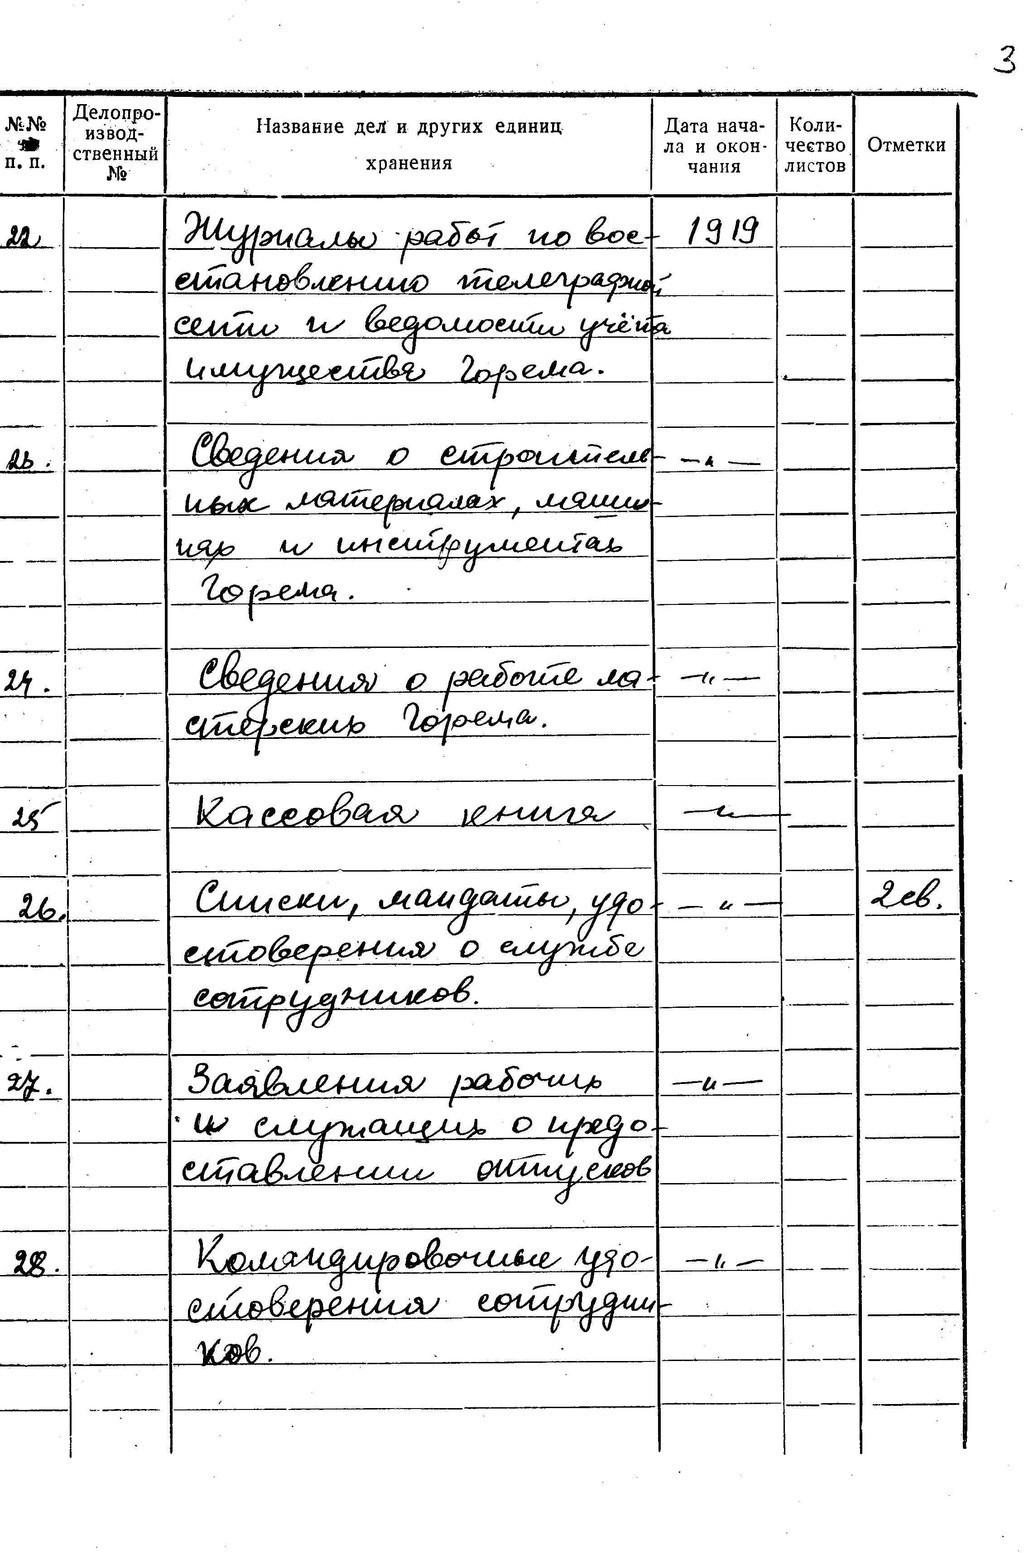 3
№№ п. п.
Делопроизводственный №
Название дел и других единиц хранения
Дата начала и окончания
Количество листов
Отметки
22 Журналы работ по вос- 1919
становлению телеграфной
сети и ведомости учёта
имущества Горема.
23. Сведения о строитель- —„—
ных материалах, маши-
нах и инструментах
Горема.
24. Сведения о работе ма- —„—
стерских Горема.
25 Кассовая книга —„—
26. Списки, мандаты, удо- —„— 2св.
стоверения о службе
сотрудников.
27. Заявления рабочих —„—
и служащих о предо-
ставлении отпусков
28. Командировочные удо- —„—
стоверения сотрудни-
ков.